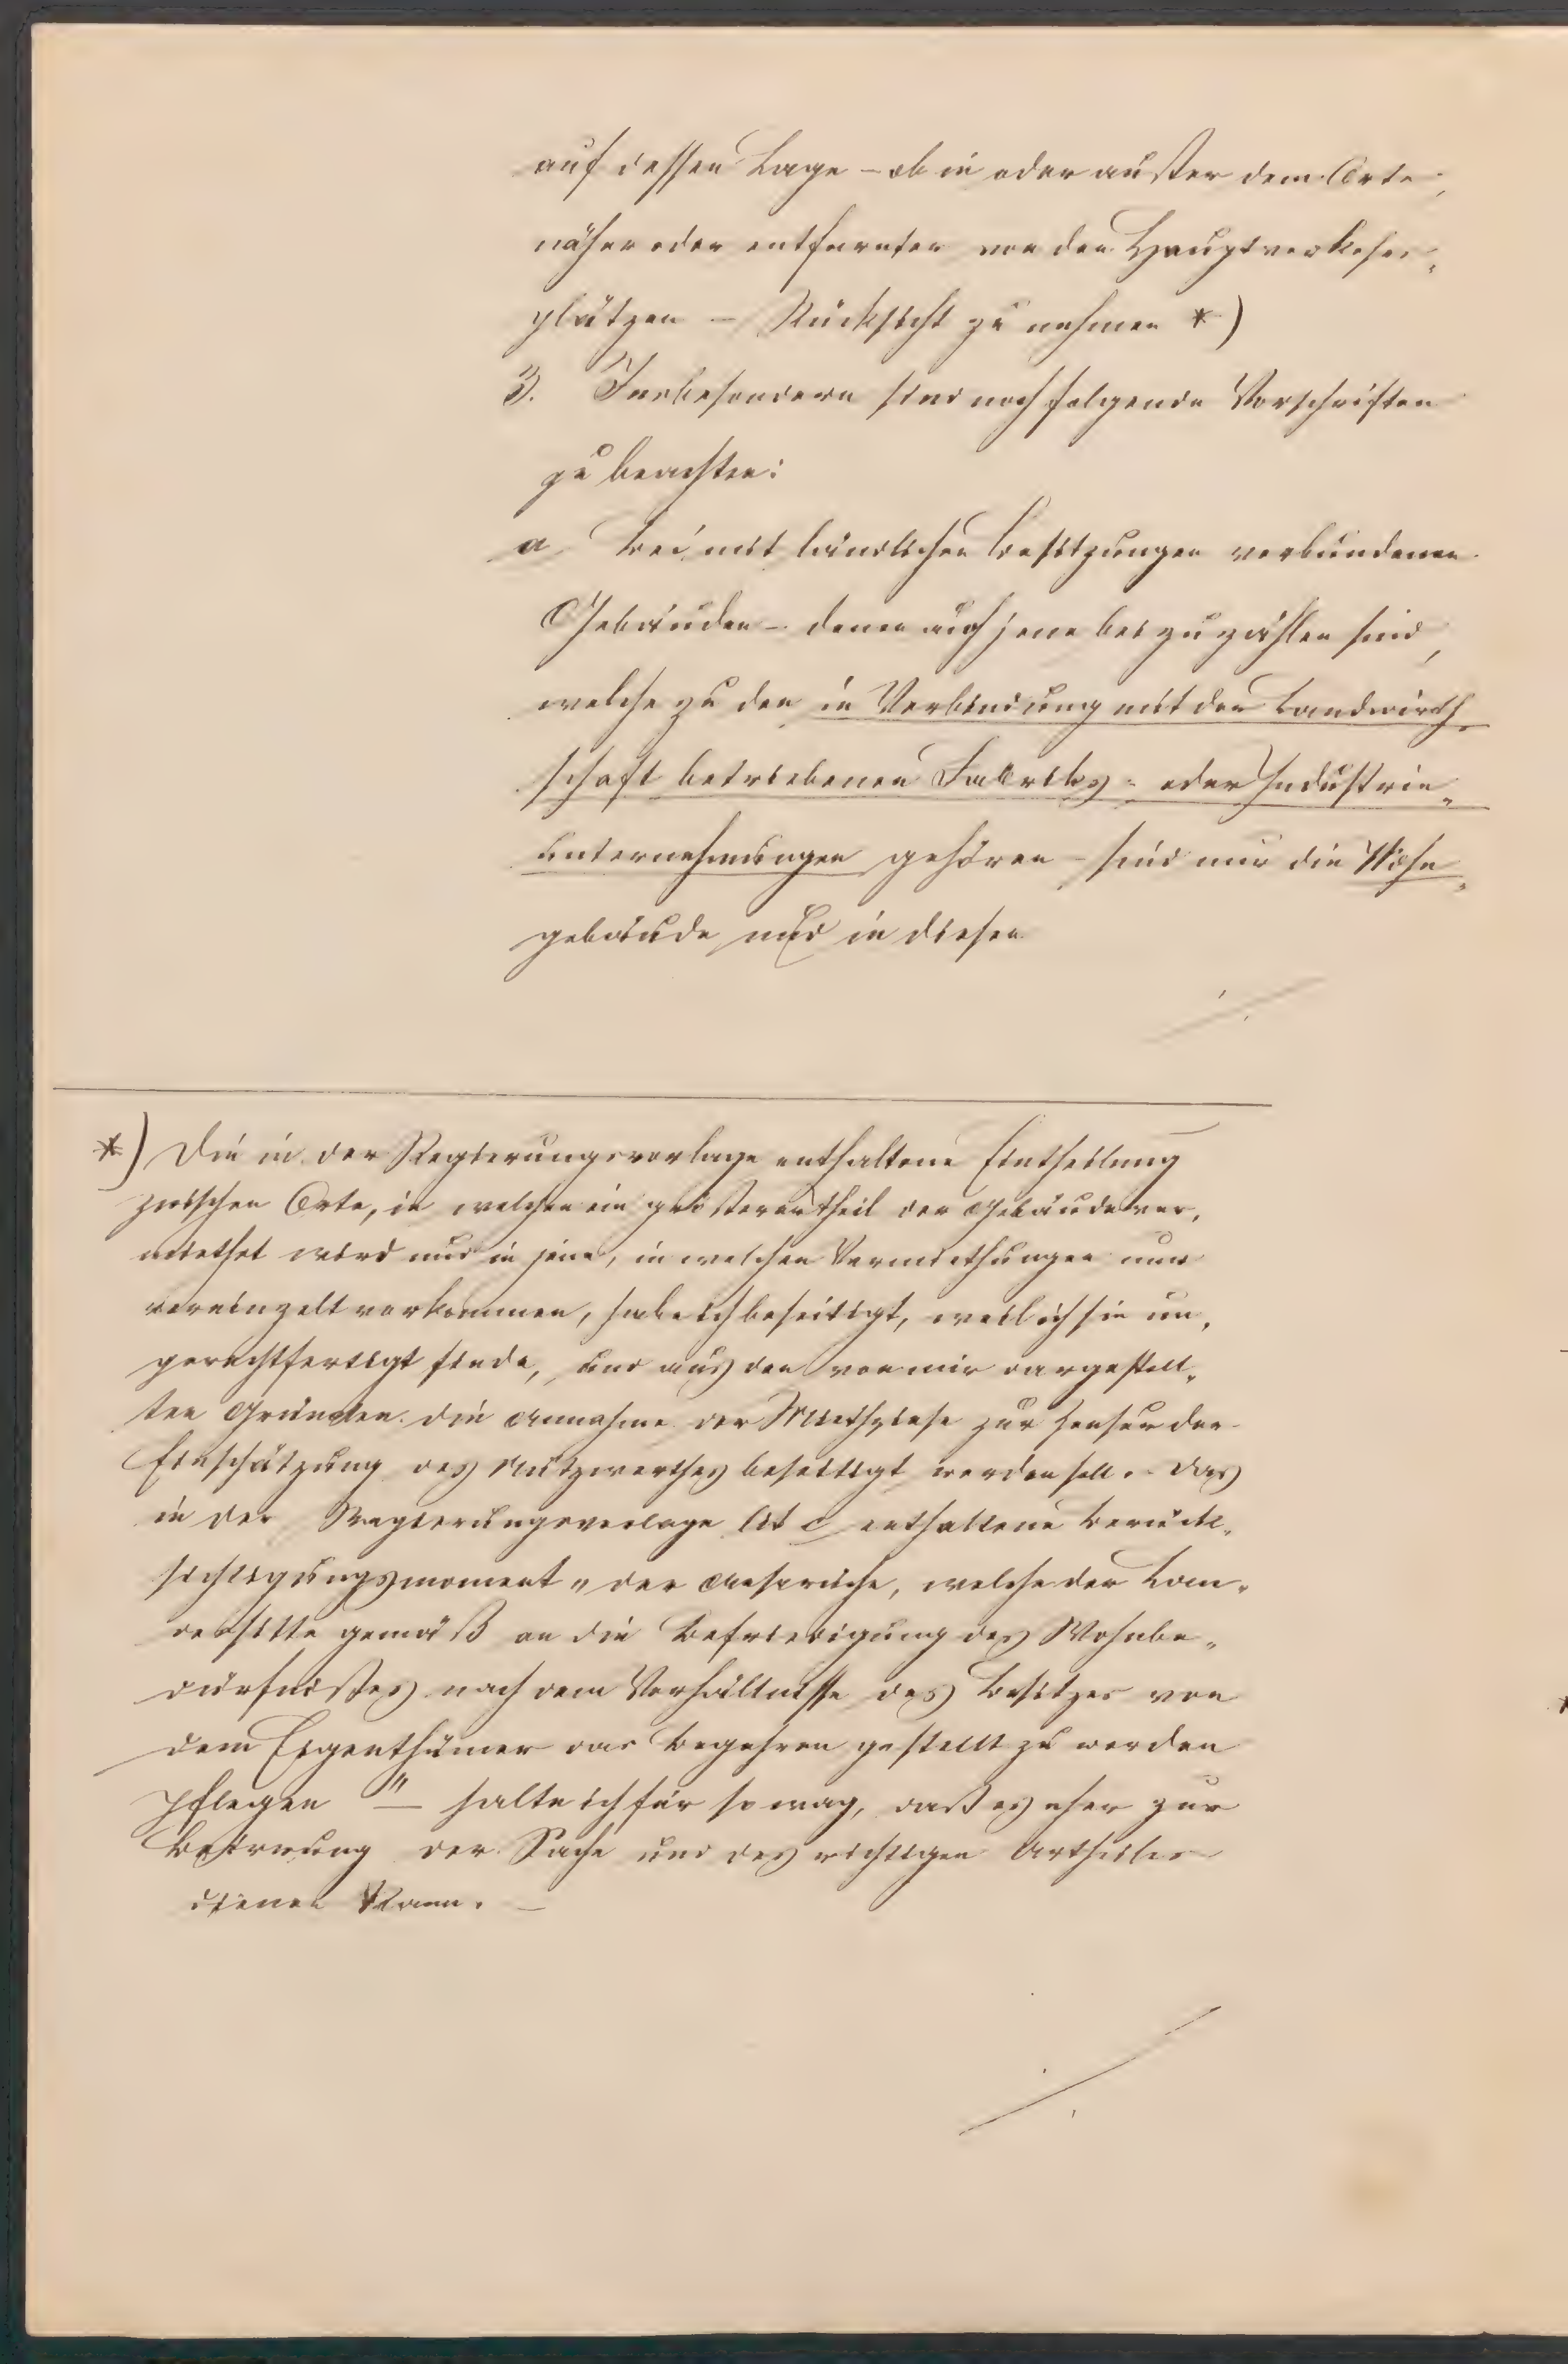 auf dessen Lage – ob in oder außer dem Orte,
näher oder entfernter von den Hauptverkehrs„
plätzen – Rücksicht zu nehmen *)
3. Insbesondere sind noch folgende Vorschriften
zu beachten:
a bei mit ländlichen Besitzungen verbundenen
Gebäuden – denen auch jene beizuzählen sind,
welche zu den in Verbindung mit der Landwirth„
schaft betriebenen Fabriks- oder Industrie„
unternehmungen gehören – sind nur die Wohn„
gebäude und in diesen
./.
*) Die in der Regierungsvorlage enthaltene Eintheilung
zwischen Orte, in welchen ein größerer Theil der Gebäude ver„
miethet wird und in jene, in welchen Vermiethungen nur
vereinzelt vorkommen, habe ich beseitigt, weil ich sie un„
gerechtfertigt finde, und aus den von mir dargestell„
ten Gründen die Annahme der Miethzinse zur der
Einschätzung des Nutzwerthes beseitigt werden soll. – Das
in der Regierungsvorlage lit c enthaltene Berück„
sichtigungsmoment „der Ansprüche, welche der Lan„
dessitte gemäß an die Befriedigung des Wohnbe„
dürfnißes nach dem Verhältnisse des Besitzes von
dem Eigenthümer das Begehren gestellt zu werden
pflegen" – halte ich für so vag, daß es eher zur
Beirrung der Sache und des richtigen Urtheiles
dienen kann. –
./.